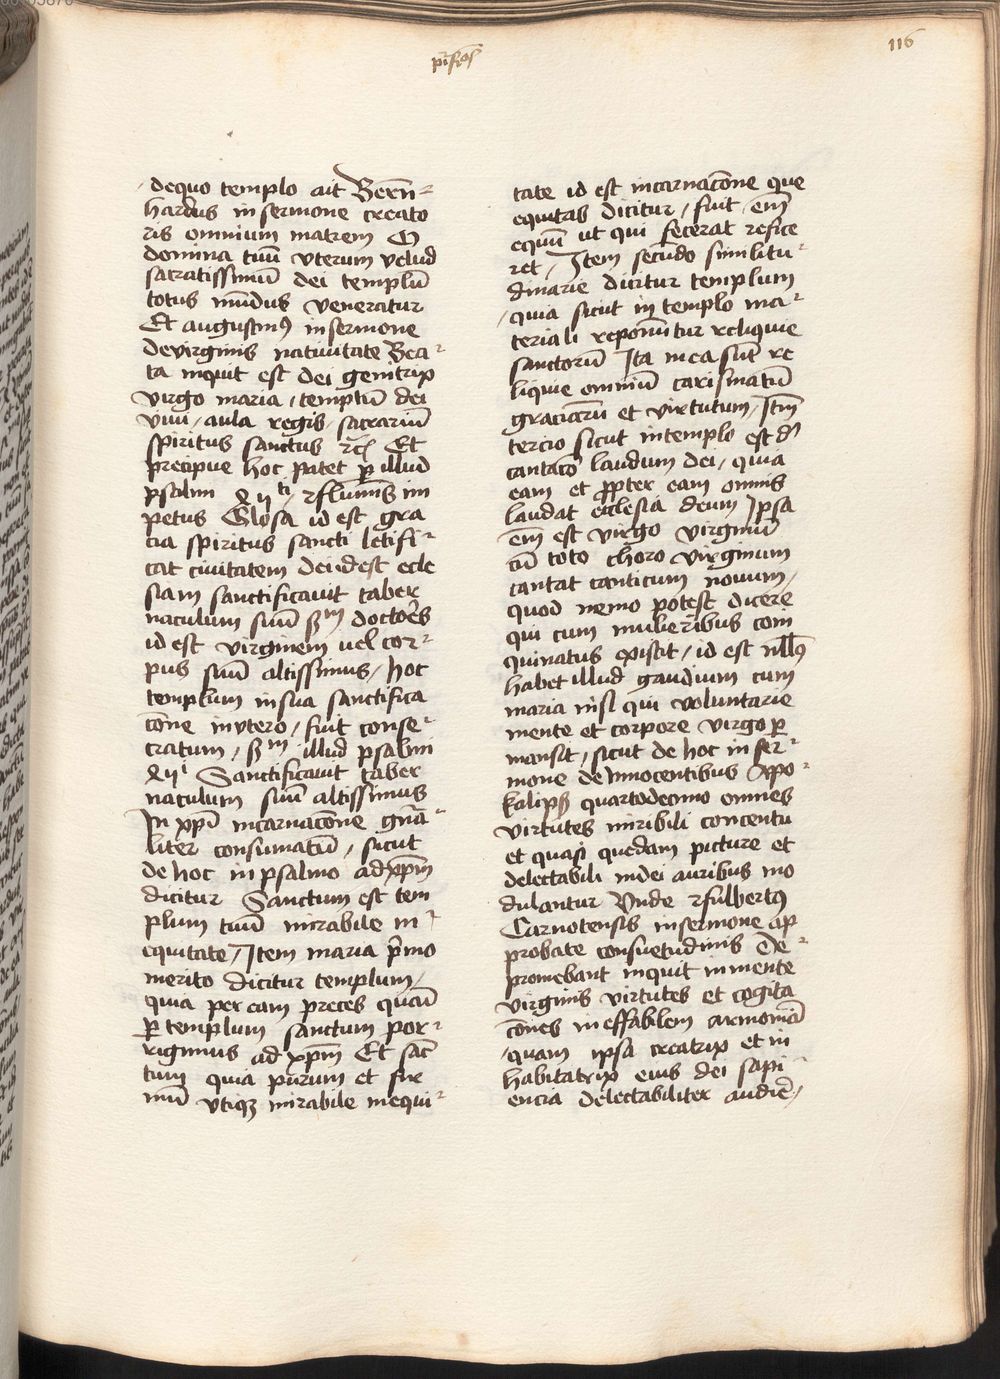 116
dequo templo ait Bern̄=
hardus in sermone creato
ris omnium matrem O
domina tuū vterum velud
sacratissimū dei templū
totus mūdus veneratur
Et augustinꝰ in sermone
devirginis natiuitate Bea=
ta inquit est dei genitrix
virgo maria / templū dei
viui / aula regis / sacrariū
spiritus sanctus ꝛcͣ Et
precipue hoc patet ꝑ illud
psalmi ti / fluminis im
petus Glosa id est gra
cia spiritus sancti letifi=
cat ciuitatem dei idest eccle
siam sanctificauit taber
naculum suū sm̄ doctores
id est virginem uel cor=
pus suū altissimus / hoc
templum insua sanctifica
cōne invtero / fuit conse=
cratum / sm̄ illud psalmi
Sanctificauit taber
naculum suū altissimus
In xp̄i incarnacōne gn̄a=
liter consumatū / sicut
de hoc in psalmo ad xp̄m
dicitur Sanctum est tem
plum tuū mirabile in=
equitate / Item maria p̄mo
merito dicitur templum /
quia per eam preces quasi
ꝑ templum sanctum por=
rigimus ad xp̄m Et sāc
tum quia purum et fir
mū vtiqꝫ mirabile inequi=
tate id est incarnacōne que
equitas dicitur / fuit em̄
equū ut qui fecerat refice
ret / Item secūdo similitu=
dinarie dicitur templum
/ quia sicut in templo ma=
teriali reponūtur reliquie
sanctorū Ita in ea sūt re
liquie omniū carismatū
graciarū et virtutum / Itm̄
tercio sicut intemplo est dī
cantacō laudum dei / quia
eam et ꝓpter eam omnis
laudat ecclesia deum Ipsa
em̄ est virgo virginū
cū toto choro virginum
cantat canticum nouum /
quod nemo potest dicere
qui cum mulieribus coin
quinatus existit / id est nullꝰ
habet illud gaudium cum
maria nisi qui voluntarie
mente et corpore virgo ꝑ
mansit / sicut de hoc in ser=
mone de Innocentibus Apo=
kalipsꝭ quartodecimo omnes
virtutes miribili concentu
et quasi quedam picture et
delectabili indei auribus mo
dulantur Vnde fulbertꝰ
Carnotensis insermone ap
probate consuetudinis De=
promebant inquit inmente
virginis virtutes et cogita
cōnes ineffabilem armoniā
/ quam ipsa creatrix et in
habitatrix eius dei sapi
encia delectabiliter audiē /